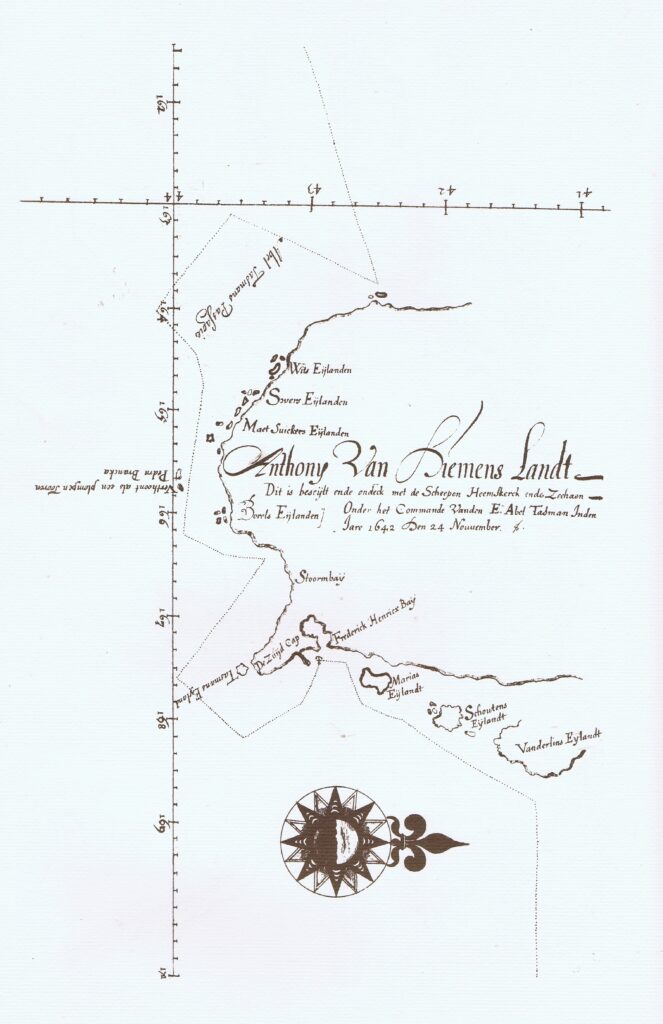 162
43
42
41
44
163
Abel Tasmans Passagie
164
Wits Eijlanden
Swers Eijlanden
165
Maet Suickers Eijlanden
Anthony Van Diemens Landt
Dit is beseijlt ende ondeck met de Scheepen Heemskerck ende Zeehaen
Onder het Commande Vanden E. Abel Tasman Inden
Jare 1642 Den 24 Nouvember.
Verthoont als een plompen Tooren
Pedra Brancka
166
Boeels Eijlanden
Stoormbaij
167
Frederick Henricx Baij
De Zuijd Cap
Tasmans Eijland
Marias
Eijlandt
168
Schoutens
Eijlandt
Vanderlins Eijlandt
169
171